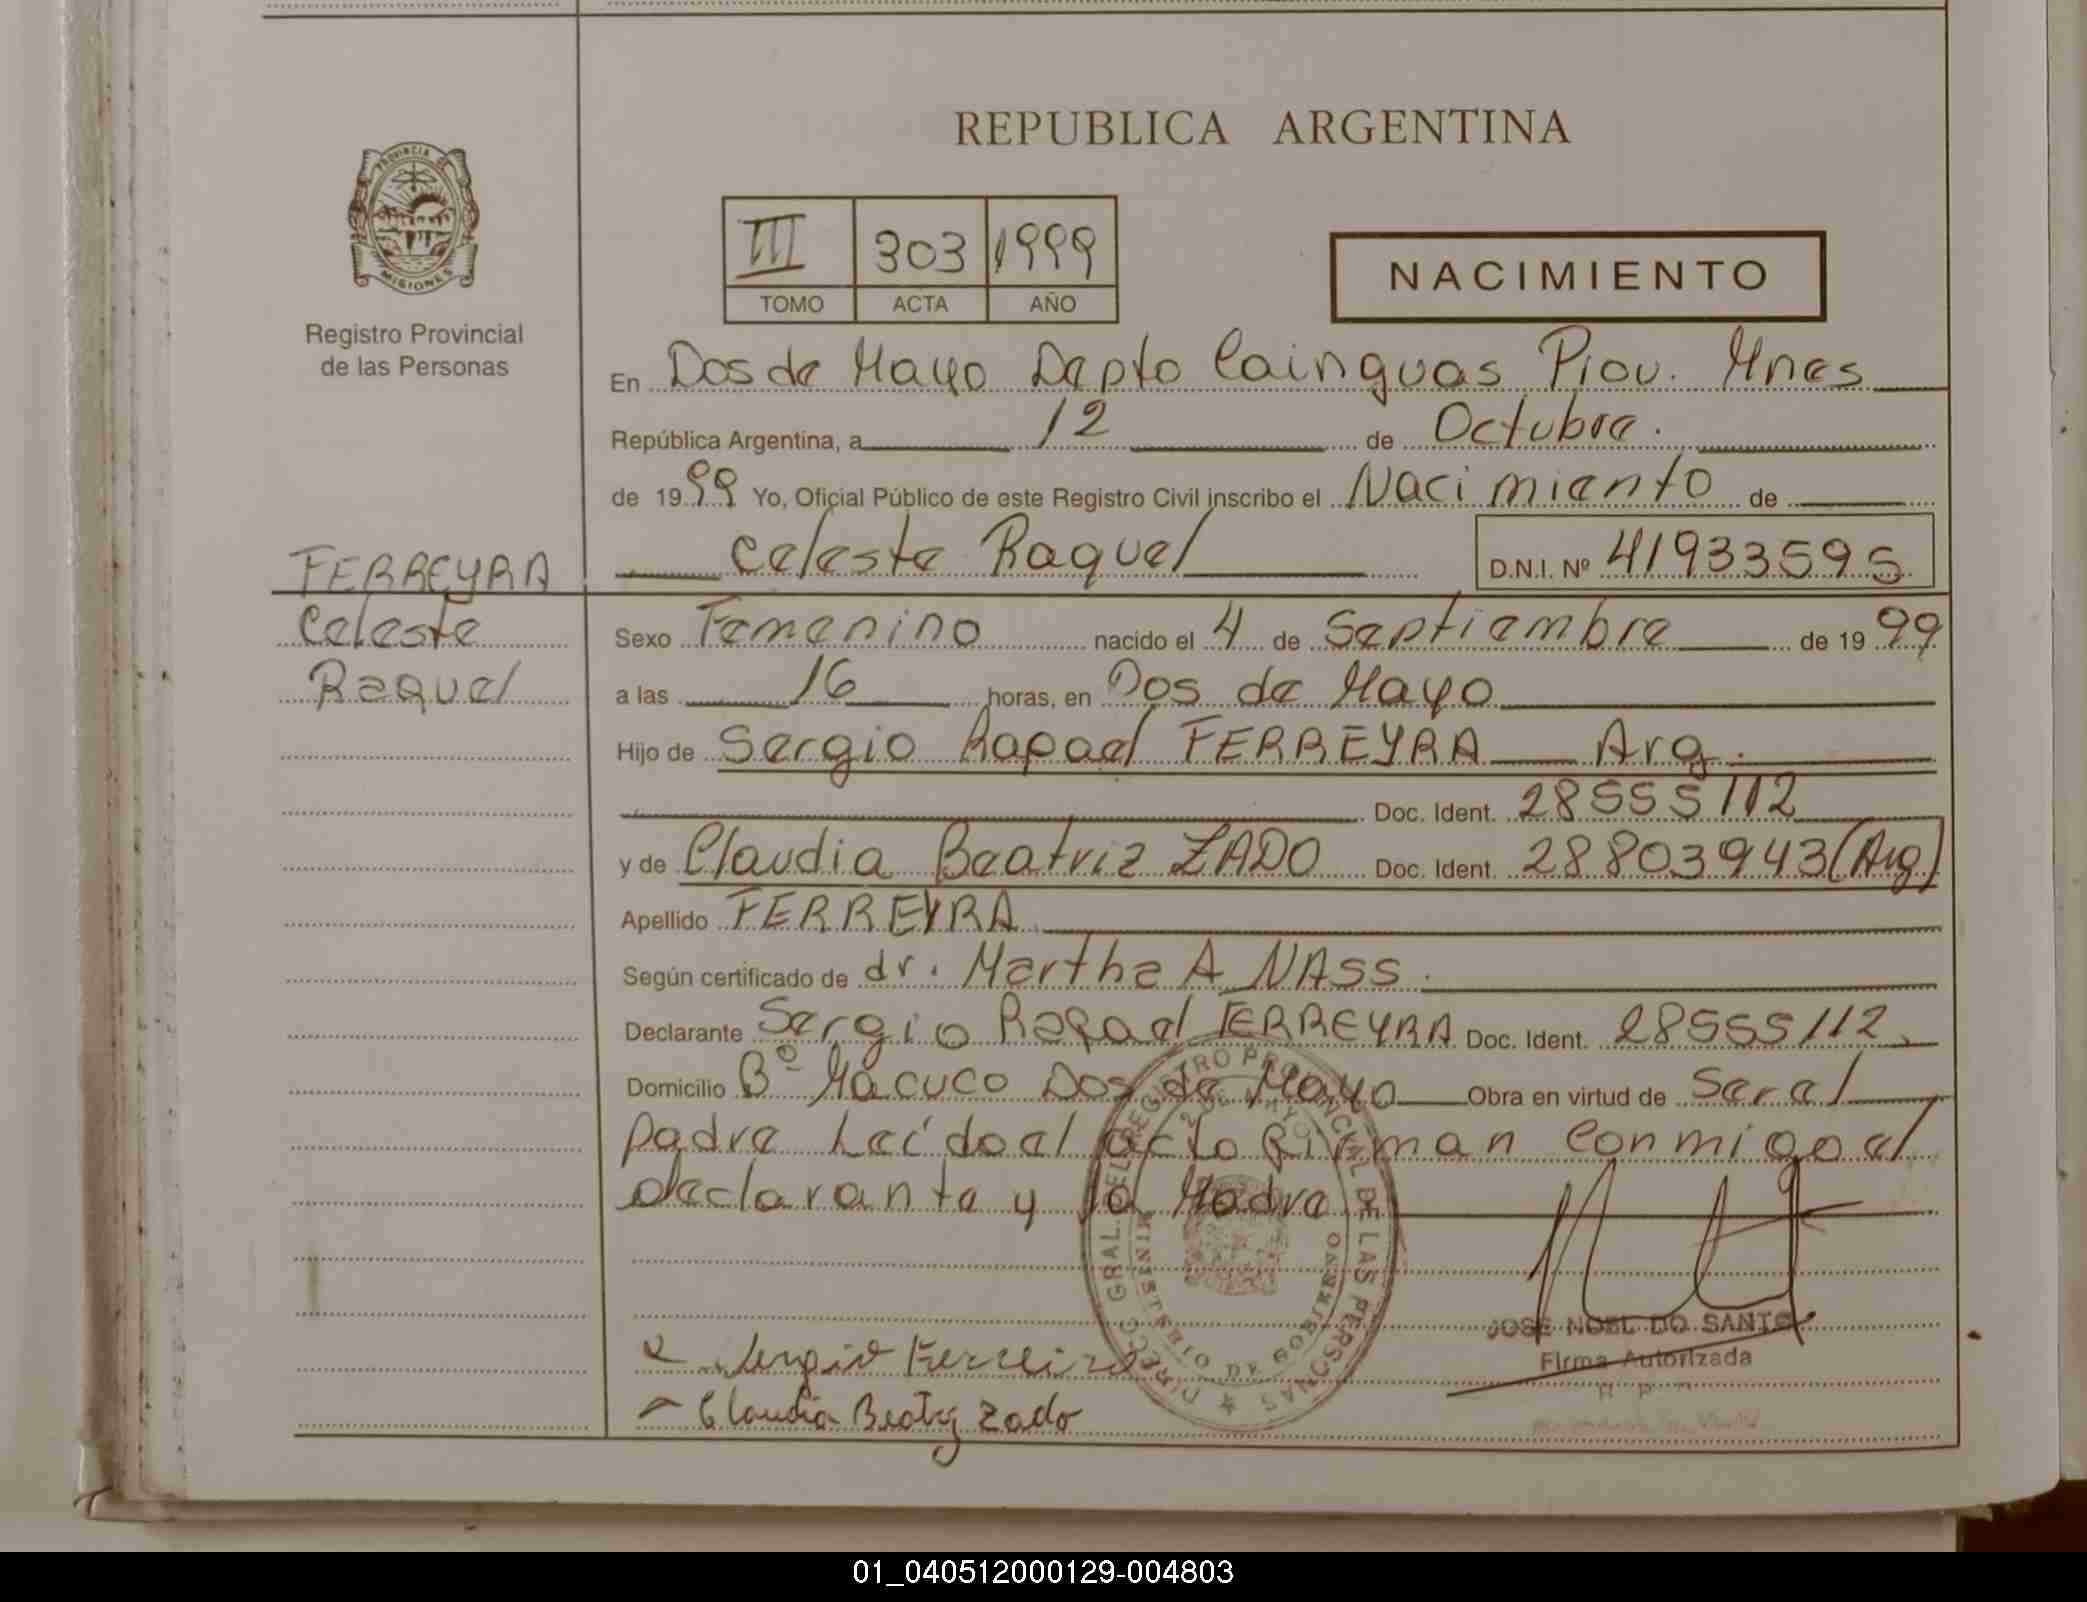 REPUBLICA ARGENTINA
PROVINCIA DE MISIONES
Registro Provincial
de las Personas
III 303 1999
TOMO ACTA AÑO
NACIMIENTO
En Dos de Mayo Depto Cainguas Prov. Mnes
República Argentina, a 12 de Octubre.
de 1999 Yo, Oficial Público de este Registro Civil inscribo el Nacimiento de
Celeste Raquel D.N.I. Nº 41933595
FERREYRA
Celeste
Raquel
Sexo Femenino nacido el 4 de Septiembre de 1999
a las 16 horas, en Dos de Mayo
Hijo de Sergio Rafael FERREYRA Arg.
Doc. Ident. 28555112
y de Claudia Beatriz ZADO Doc. Ident. 28803943 (Arg)
Apellido FERREYRA
Según certificado de dr. Martha A NASS.
Declarante Sergio Rafael FERREYRA Doc. Ident. 28555112
Domicilio Bº Macuco Dos de Mayo Obra en virtud de Ser el
padre Leído el acto firman conmigo el
declarante y la Madre
DIRECC. GRAL. DEL REGISTRO PROVINCIAL DE LAS PERSONAS
2 DE MAYO
MINISTERIO DE GOBIERNO
JOSE NOEL DO SANTO
Firma Autorizada
Sergio Ferreira
Claudia Beatriz Zado
01_040512000129-004803